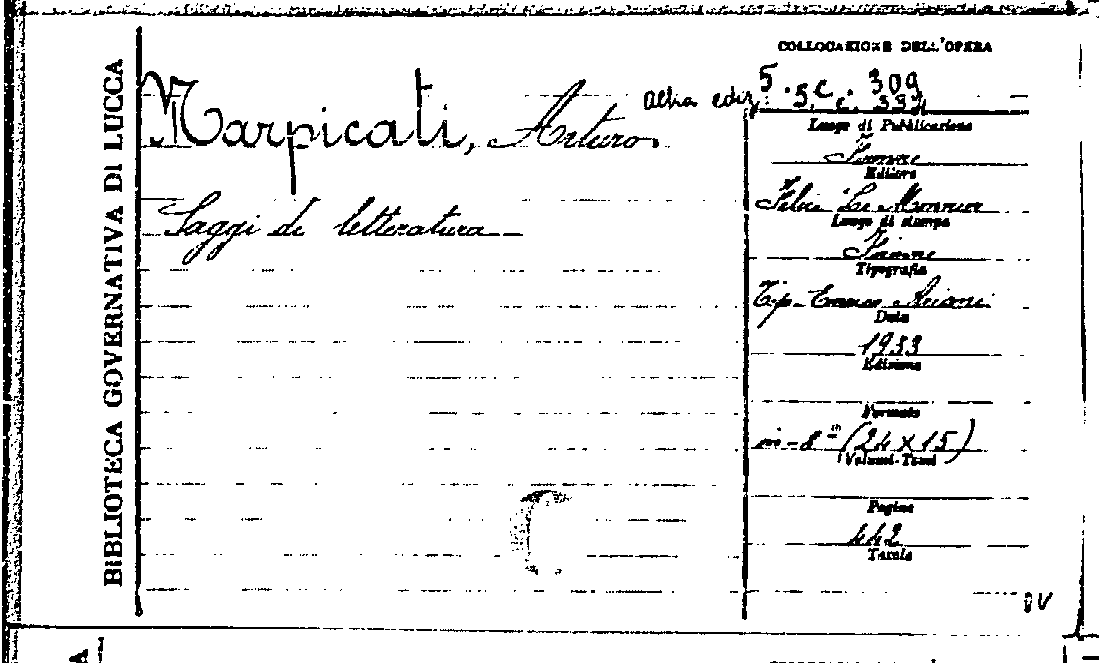 BIBLIOTECA GOVERNATIVA DI LUCCA
COLLOCAZIONE DELL'OPERA
5. 5. c. 309
altra ediz. 5. c.
Marpicati, Arturo
Luogo di Pubblicazione
Firenze
Editore
Felice Le Monnier
Saggi di letteratura
Luogo di stampa
Firenze
Tipografia
Tip. Enrico Ariani
Data
1933
Edizione
Formato
in-8° (24 x 15)
Volumi-Tomi
Pagine
442
Tavole